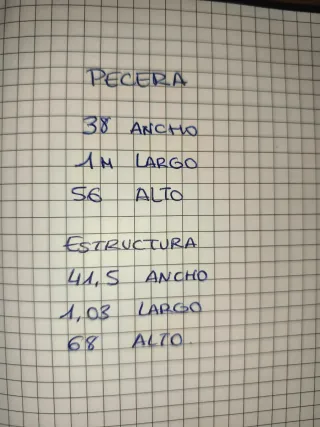 PECERA
38 ANCHO
1M LARGO
56 ALTO
ESTRUCTURA
41,5 ANCHO
1,03 LARGO
68 ALTO